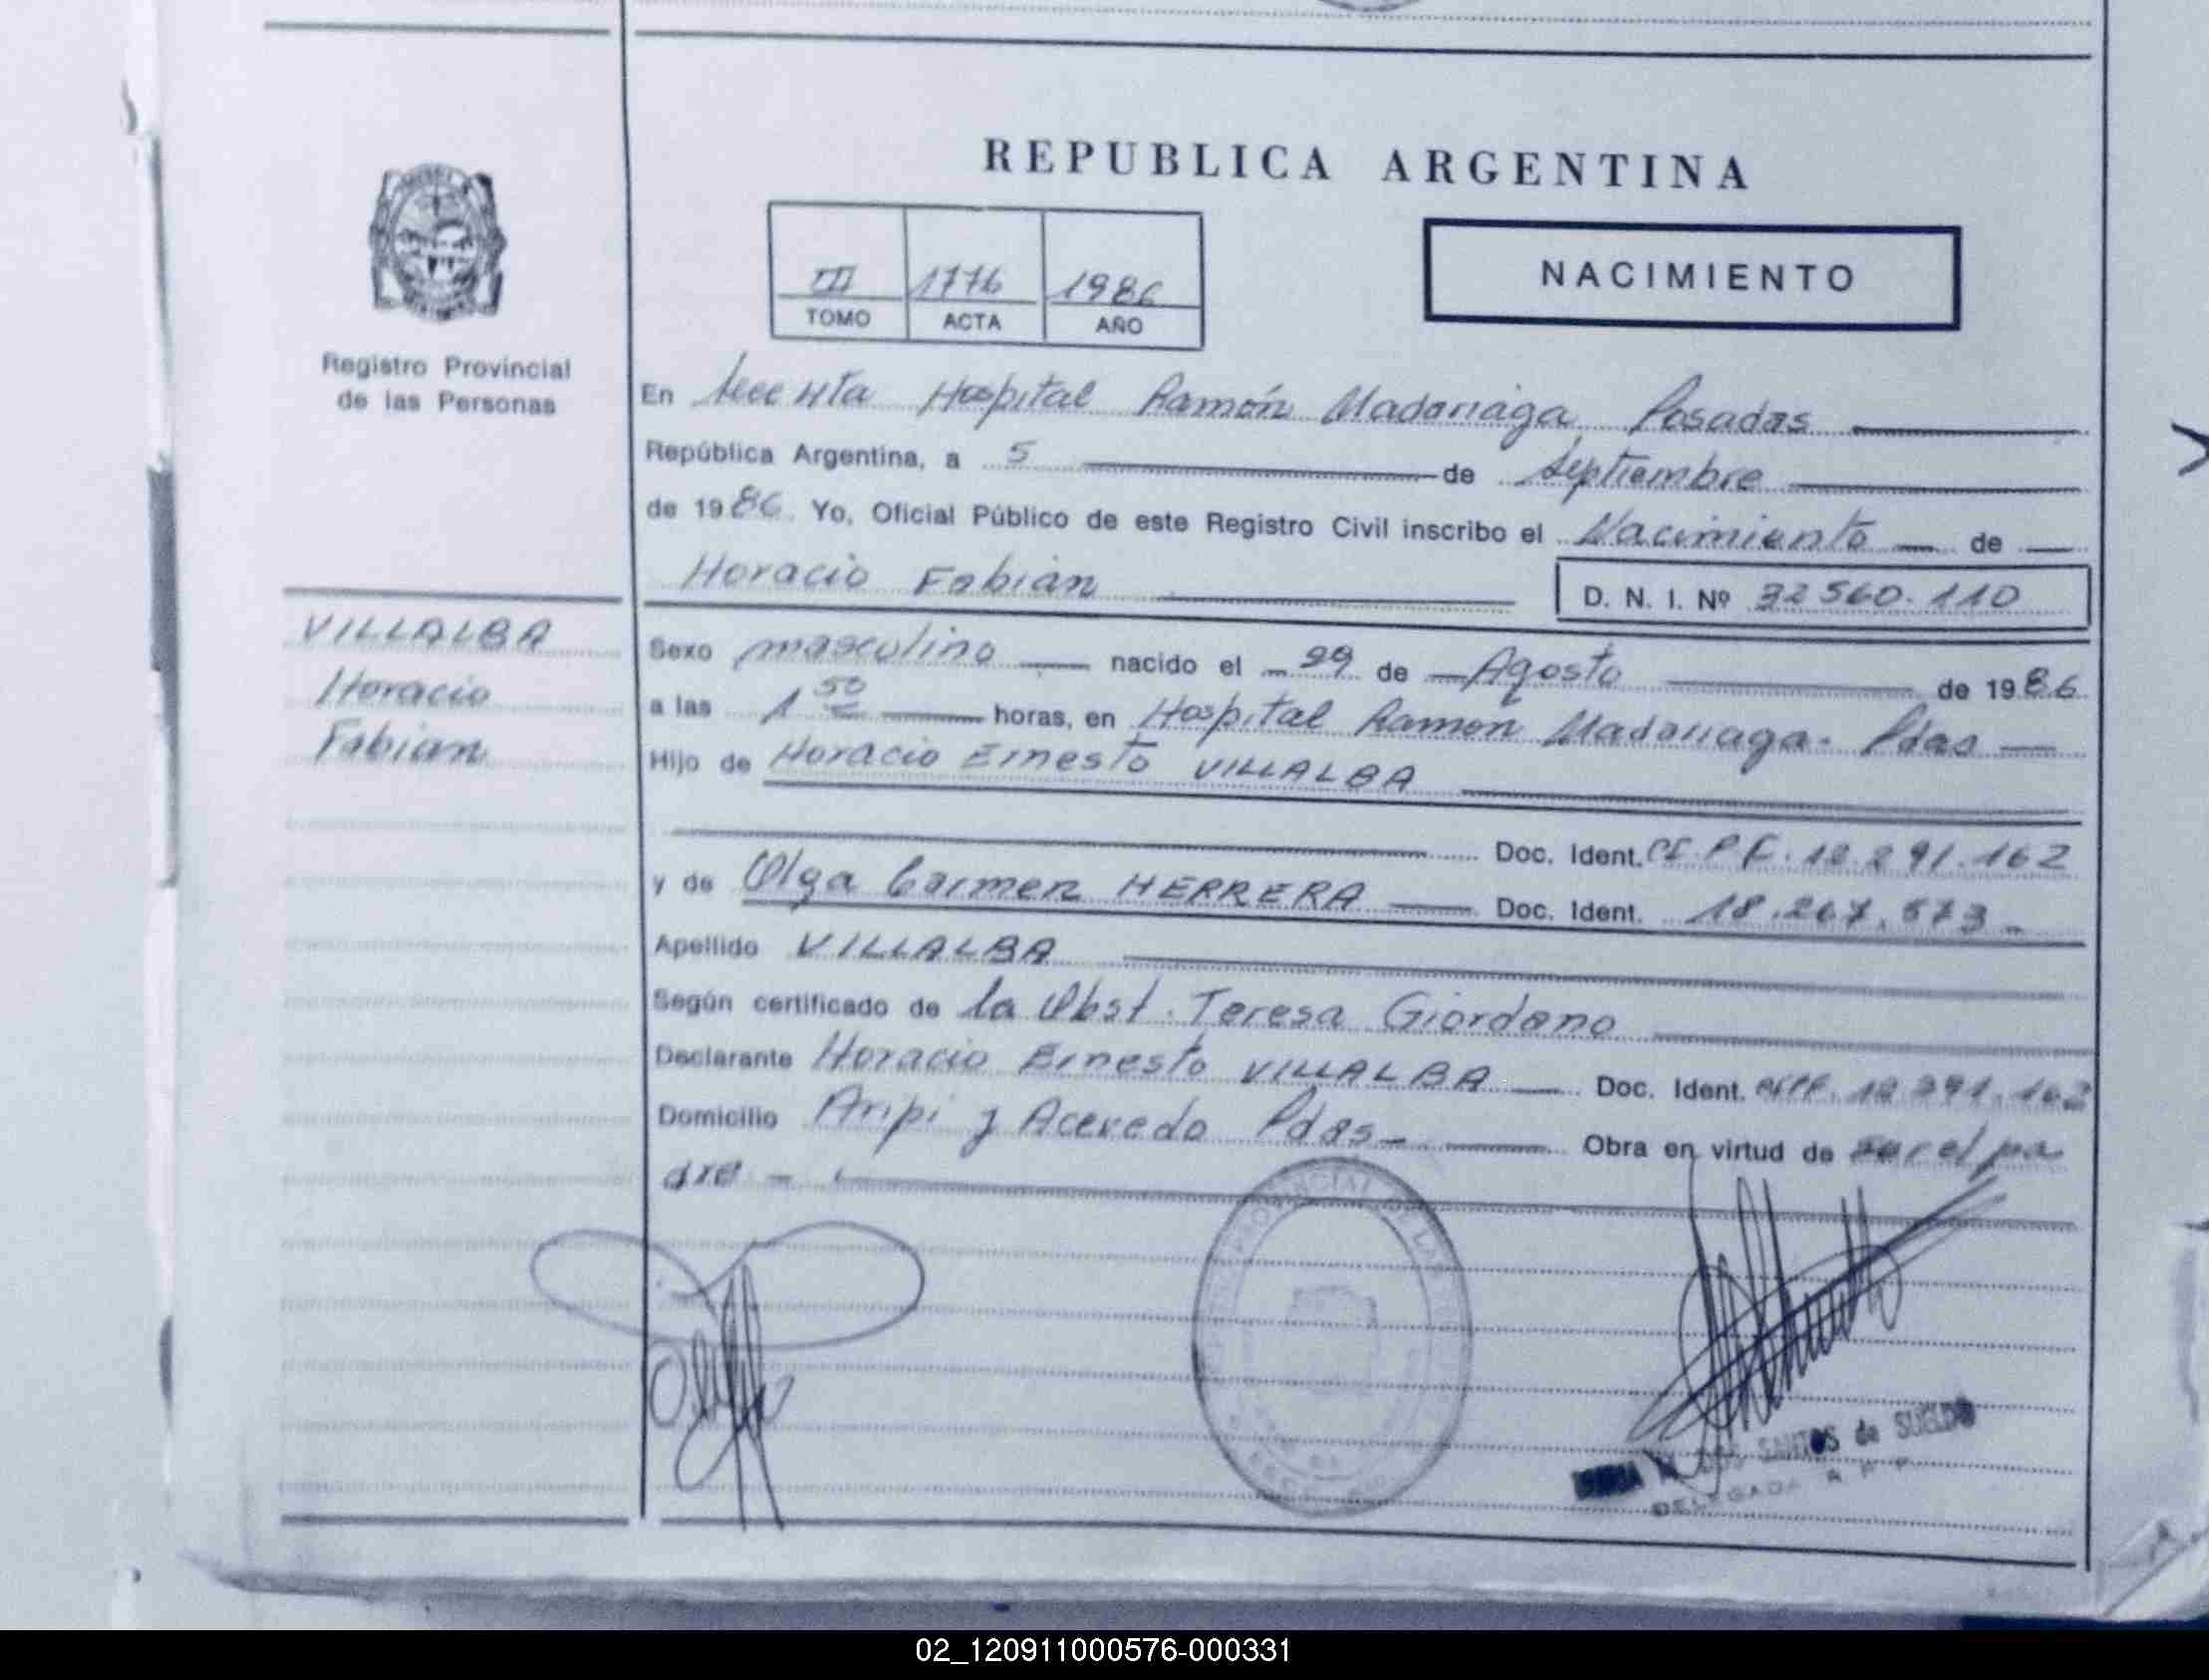 REPUBLICA ARGENTINA
NACIMIENTO
III 1776 1986
TOMO ACTA AÑO
Registro Provincial
de las Personas
En Hospital Ramón Madariaga Posadas
República Argentina, a 5 de Septiembre
de 1986. Yo, Oficial Público de este Registro Civil inscribo el Nacimiento de
Horacio Fabián
D. N. I. Nº 32560.110
VILLALBA
Horacio
Fabian
Sexo masculino nacido el 29 de Agosto de 1986
a las 1 50 horas, en Hospital Ramon Madariaga. Pdas
Hijo de Horacio Ernesto VILLALBA
Doc. Ident. 12.291.162
y de Olga Carmen HERRERA Doc. Ident. 18.267.573
Apellido VILLALBA
Según certificado de la Obst. Teresa Giordano
Declarante Horacio Ernesto VILLALBA Doc. Ident. 12.291.162
Domicilio Aripi y Acevedo Pdas Obra en virtud de ser el pa
dre
SANTOS de SUELDO
DELEGADA R P P
02_120911000576-000331